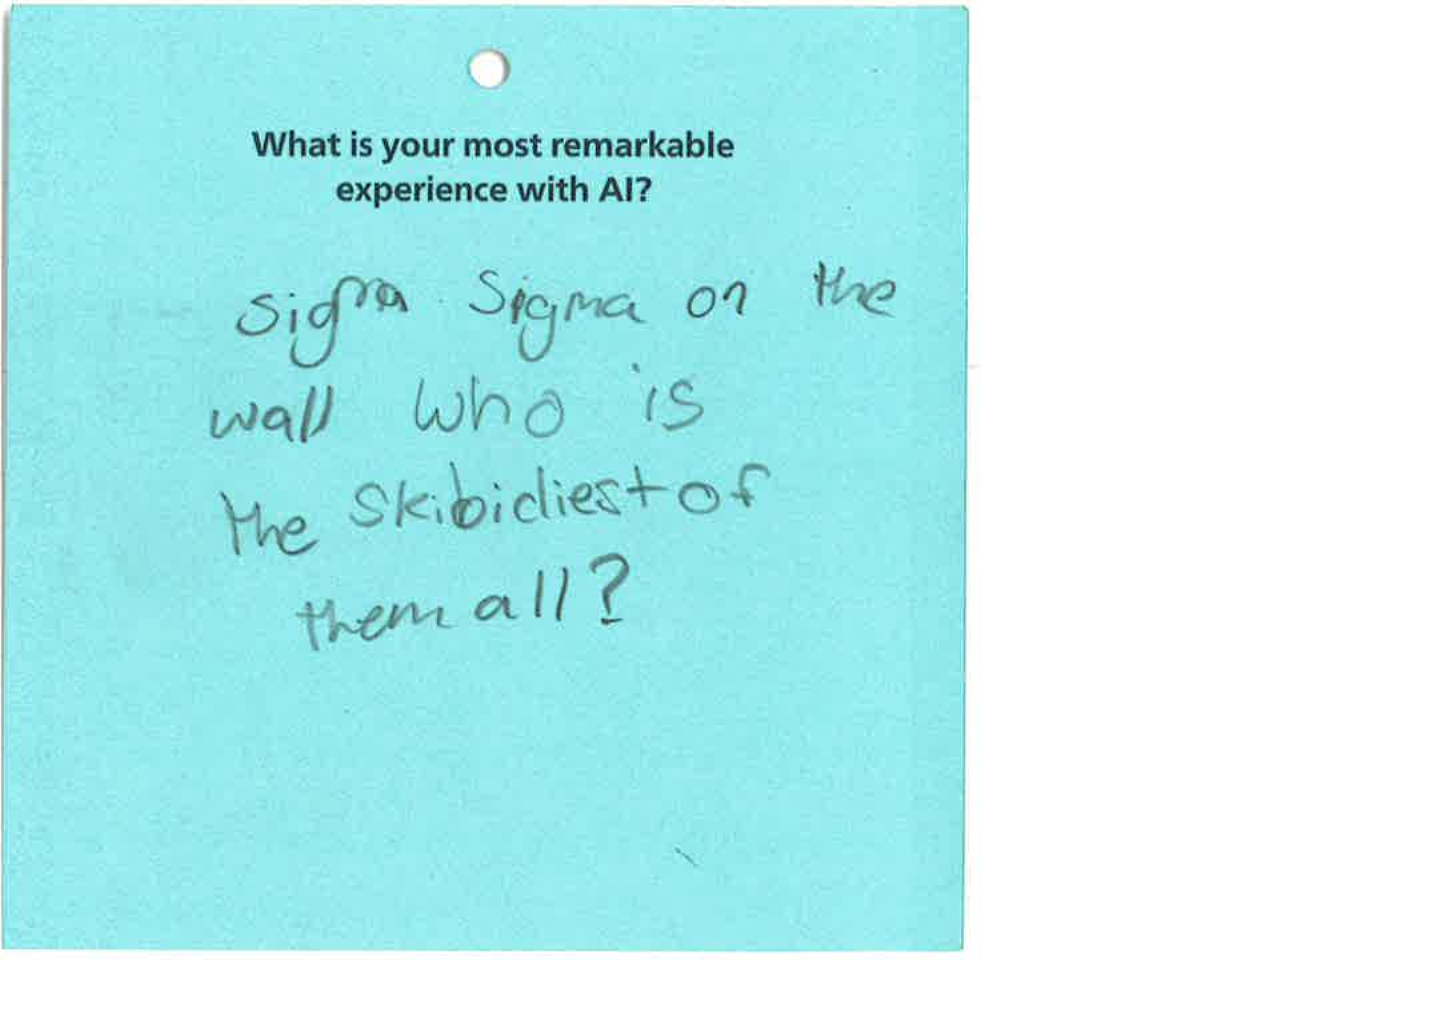 What is your most remarkable
experience with AI?
sigma Sigma on the
wall who is
the skibidiest of
them all?